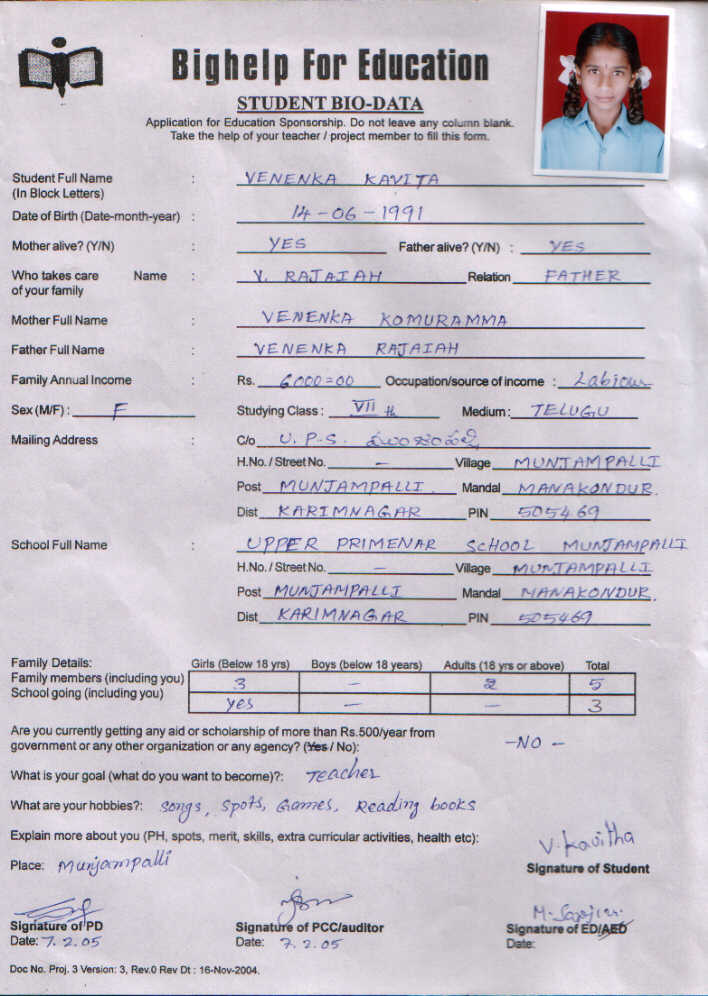 Bighelp For Education
STUDENT BIO-DATA
Application for Education Sponsorship. Do not leave any column blank.
Take the help of your teacher / project member to fill this form.
Student Full Name : VENENKA KAVITA
(In Block Letters)
Date of Birth (Date-month-year) : 14-06-1991
Mother alive? (Y/N) : YES Father alive? (Y/N) : YES
Who takes care Name : V. RAJAIAH Relation FATHER
of your family
Mother Full Name : VENENKA KOMURAMMA
Father Full Name : VENENKA RAJAIAH
Family Annual Income : Rs. 6000=00 Occupation/source of income : Labiour
Sex (M/F) : F Studying Class : VII th Medium : TELUGU
Mailing Address : C/o U.P.S.
H.No. / Street No. - Village MUNJAMPALLI
Post MUNJAMPALLI. Mandal MANAKONDUR.
Dist KARIMNAGAR PIN 505469
School Full Name : UPPER PRIMENAR SCHOOL MUNJAMPALLI
H.No. / Street No. - Village MUNJAMPALLI
Post MUNJAMPALLI Mandal MANAKONDUR.
Dist KARIMNAGAR PIN 505469
Family Details: Girls (Below 18 yrs) Boys (below 18 years) Adults (18 yrs or above) Total
Family members (including you) 3 - 2 5
School going (including you) yes - - 3
Are you currently getting any aid or scholarship of more than Rs.500/year from
government or any other organization or any agency? (Yes / No): -NO-
What is your goal (what do you want to become)?: Teacher
What are your hobbies?: songs, spots, Games, Reading books
Explain more about you (PH, spots, merit, skills, extra curricular activities, health etc):
V. Kavitha
Place: Munjampalli
Signature of Student
Signature of PD Signature of PCC/auditor Signature of ED/AED
Date: 7.2.05 Date: 7.2.05 Date:
Doc No. Proj. 3 Version: 3, Rev.0 Rev Dt : 16-Nov-2004.